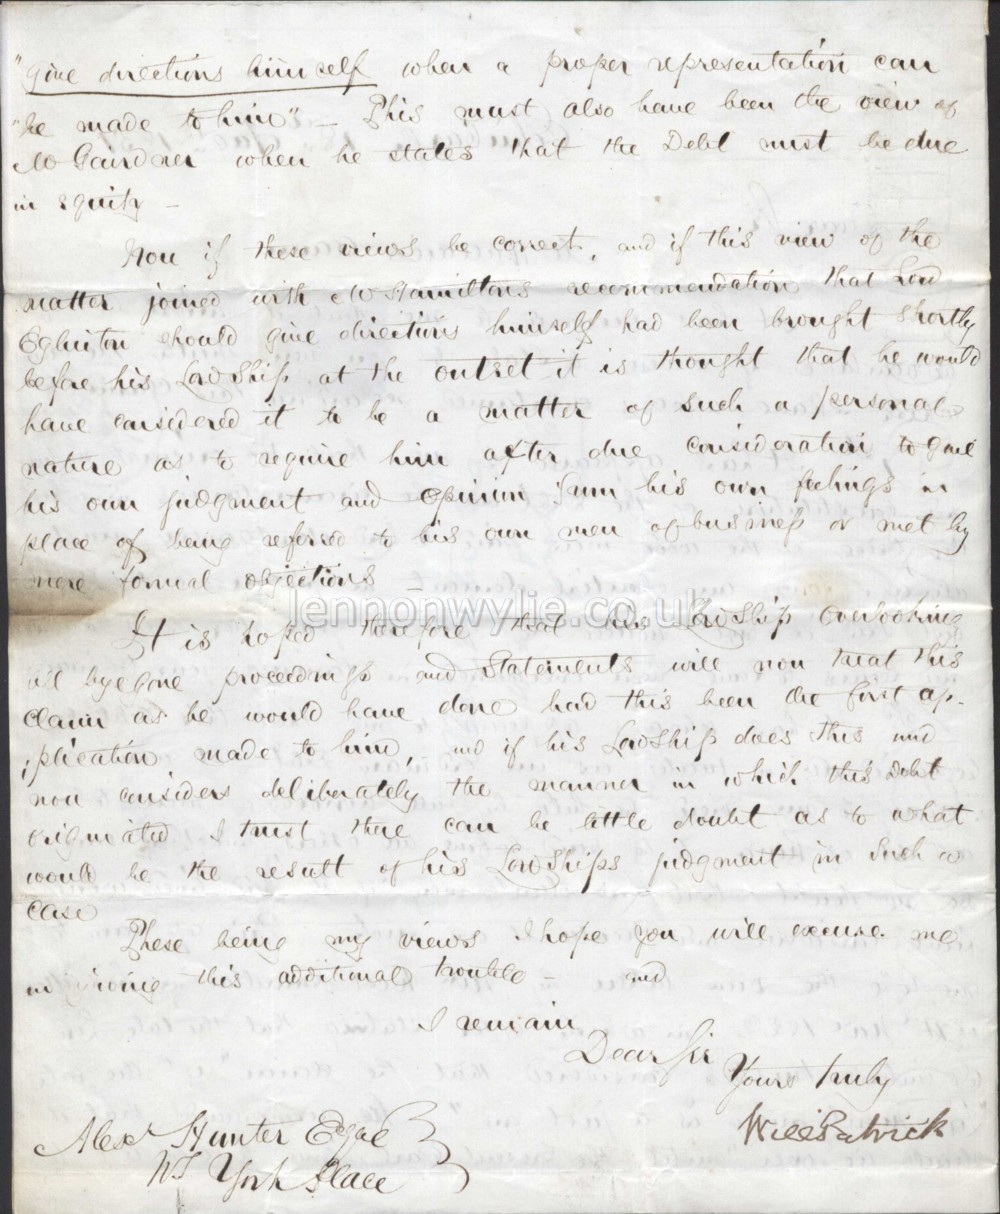 "give directions himself when a proper representation can
"be made to him" – This must also have been the view of
Mr Gairdner when he states that the Debt must be due
in equity –
Now if these views be correct, and if this view of the
matter joined with Mr Hamiltons recommendation that Lord
Eglinton should give directions himself had been brought shortly
before his Lordship at the outset it is thought that he would
have considered it to be a matter of such a personal
nature as to require him after due consideration to give
his own judgment and opinion from his own feelings in
place of being referred to his own men of business or met by
mere formal objections –
lennonwylie.co.uk
It is hoped therefore that his Lordship overlooking
all byegone proceedings and statements will now treat this
claim as he would have done had this been the first ap-
plication made to him, and if his Lordship does this and
now considers deliberately the manner in which this Debt
originated I trust there can be little doubt as to what
would be the result of his Lordships judgment in such a
case
These being my views I hope you will excuse me
in giving this additional trouble – and
I remain
Dear Sir
Yours truly
Will Patrick
Alexr Hunter Esqre
WS York Place